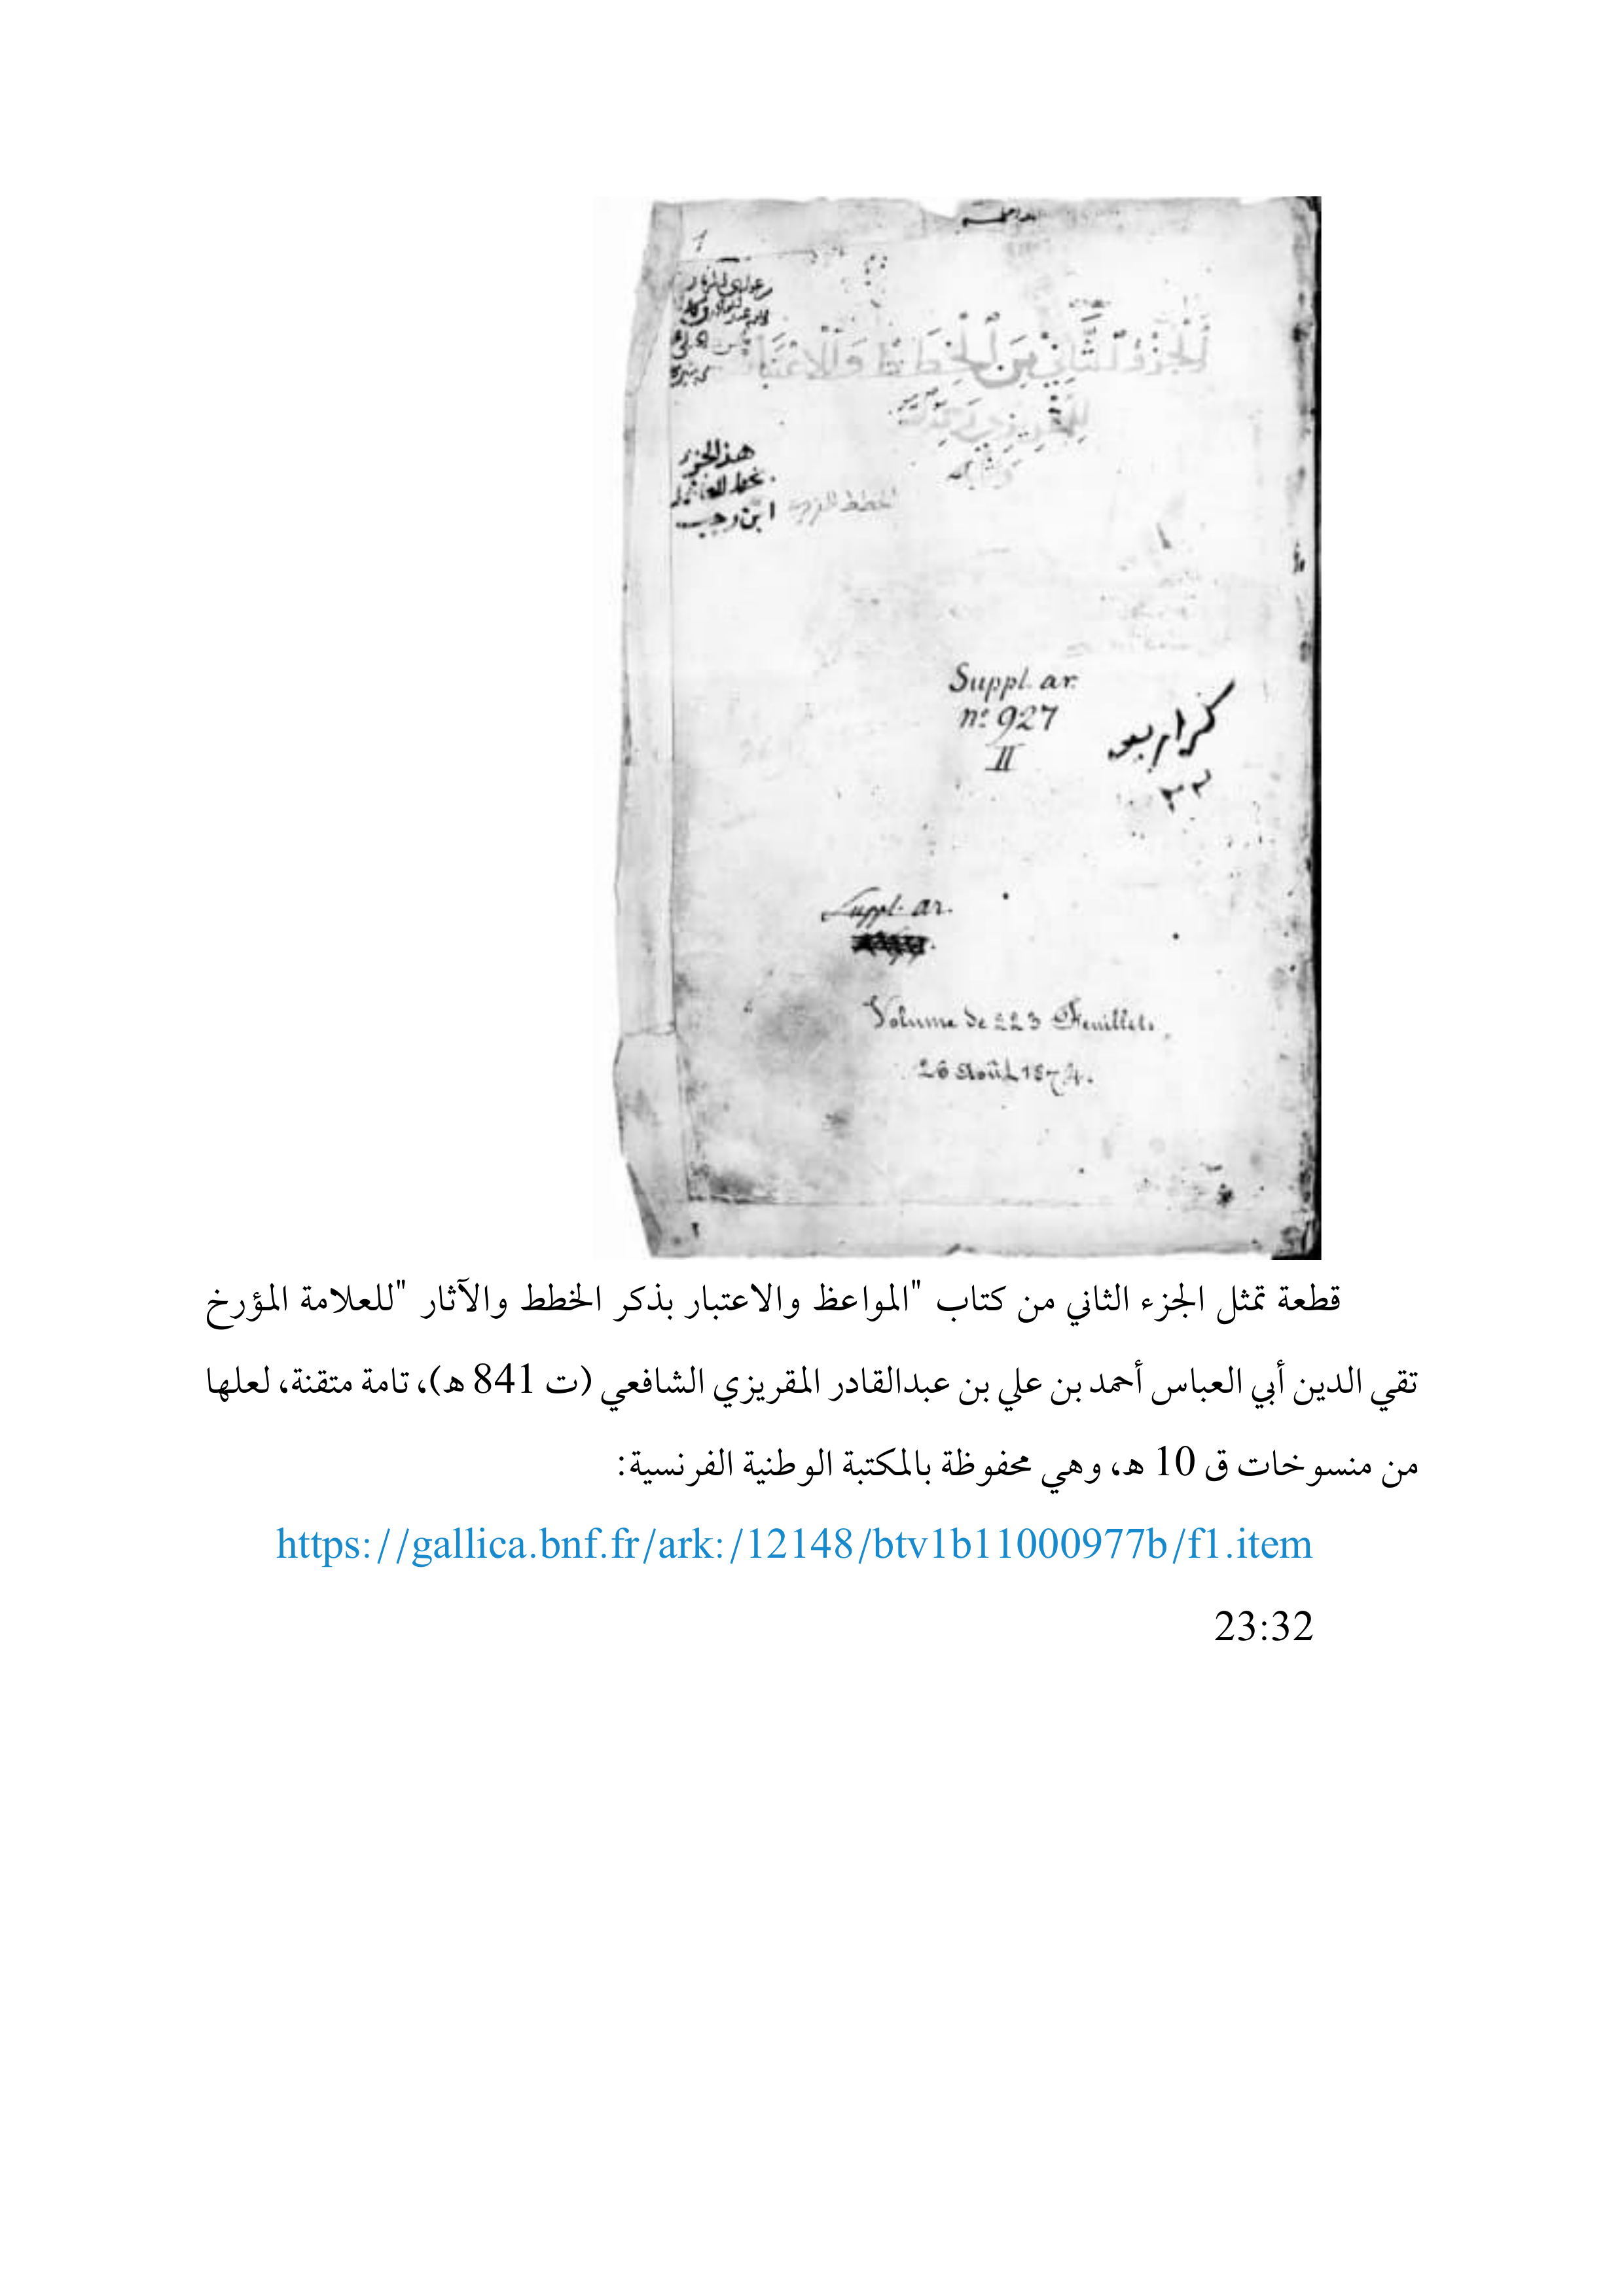 1
الجزء الثاني من الخطط والاعتبار
هذا الجزء
ابن رجب
Suppl. ar.
nº 927
II
Suppl. ar.
Volume de 223 Feuillets
26 Août 1874.
قطعة تمثل الجزء الثاني من كتاب "المواعظ والاعتبار بذكر الخطط والآثار "للعلامة المؤرخ
تقي الدين أبي العباس أحمد بن علي بن عبدالقادر المقريزي الشافعي (ت 841 ه)، تامة متقنة، لعلها
من منسوخات ق 10 ه، وهي محفوظة بالمكتبة الوطنية الفرنسية:
https://gallica.bnf.fr/ark:/12148/btv1b11000977b/f1.item
23:32